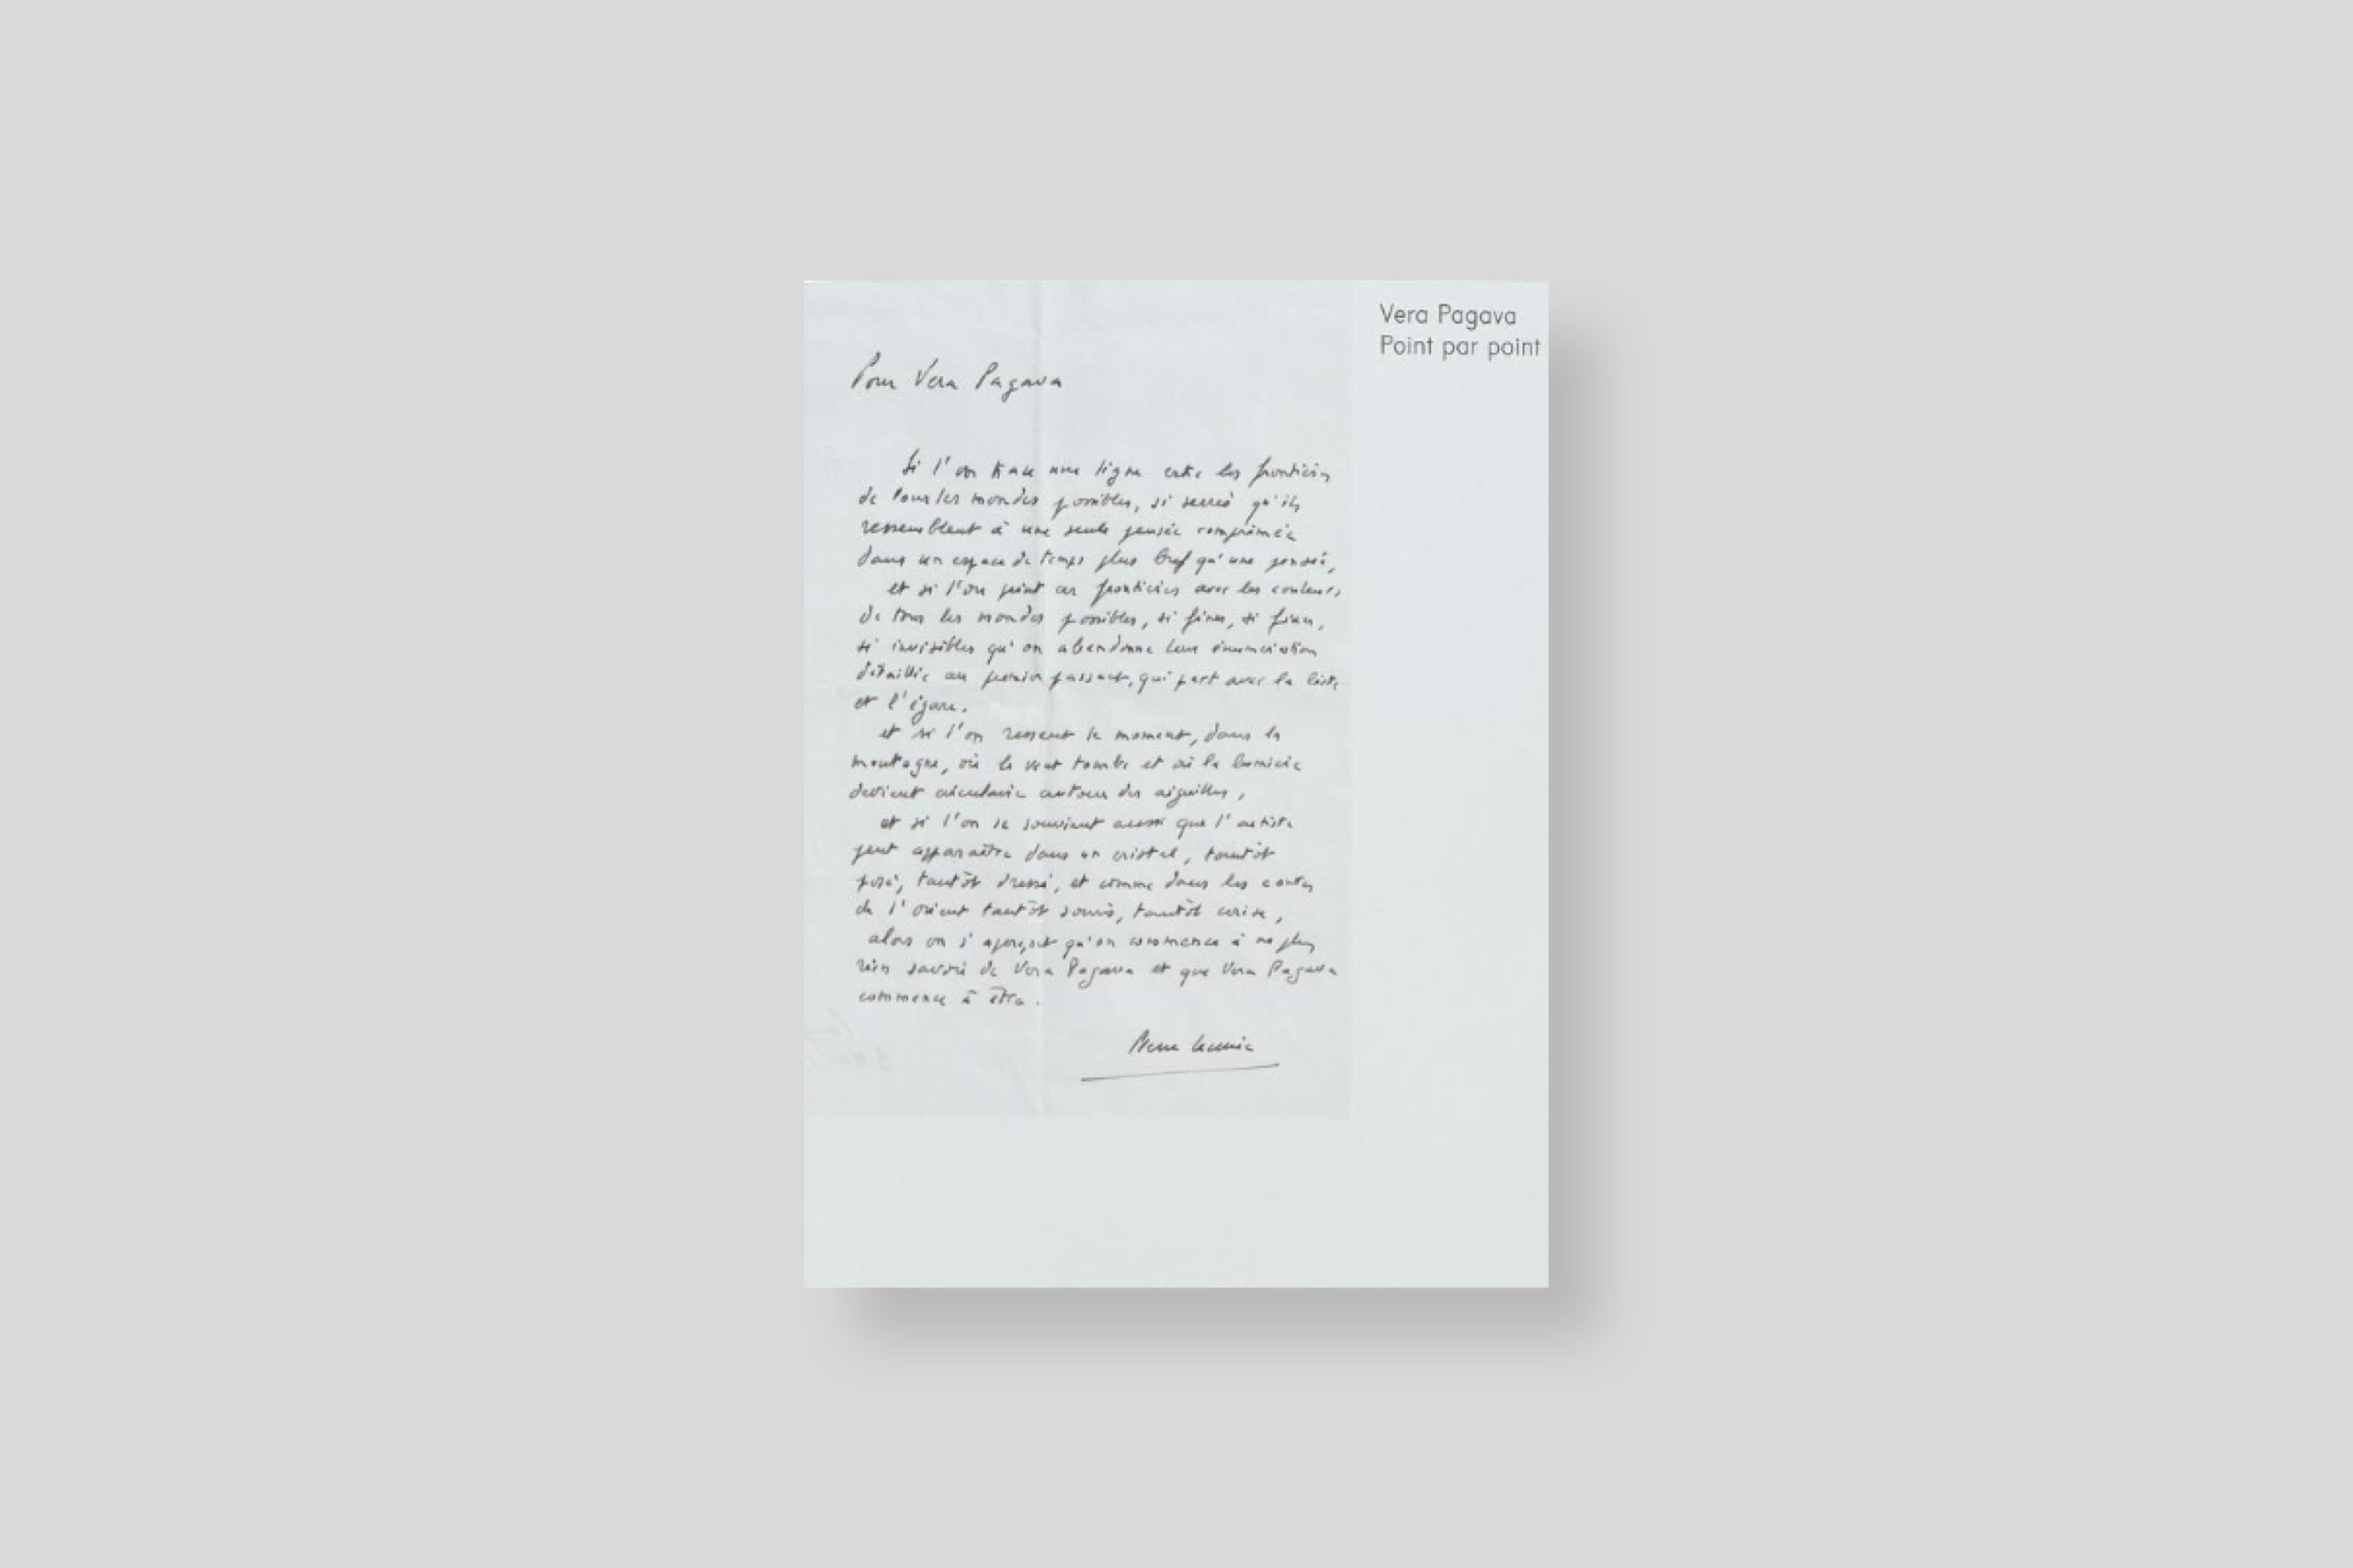 Vera Pagava
Point par point
Pour Vera Pagava
Si l'on trace une ligne entre les frontières
de tous les mondes possibles, si serrés qu'ils
ressemblent à une seule pensée comprimée
dans un espace de temps plus bref qu'une pensée,
et si l'on peint ces frontières avec les couleurs
de tous les mondes possibles, si fines, si fixes,
si invisibles qu'on abandonne leur énumération
détaillée au premier passant, qui part avec la liste
et l'égare,
et si l'on ressent le moment, dans la
montagne, où le vent tombe et où la lumière
devient circulaire autour des aiguilles,
et si l'on se souvient aussi que l'artiste
peut apparaître dans un cristal, tantôt
posé, tantôt dressé, et comme dans les contes
de l'Orient tantôt souris, tantôt cerise,
alors on s'aperçoit qu'on commence à ne plus
rien savoir de Vera Pagava et que Vera Pagava
commence à être.